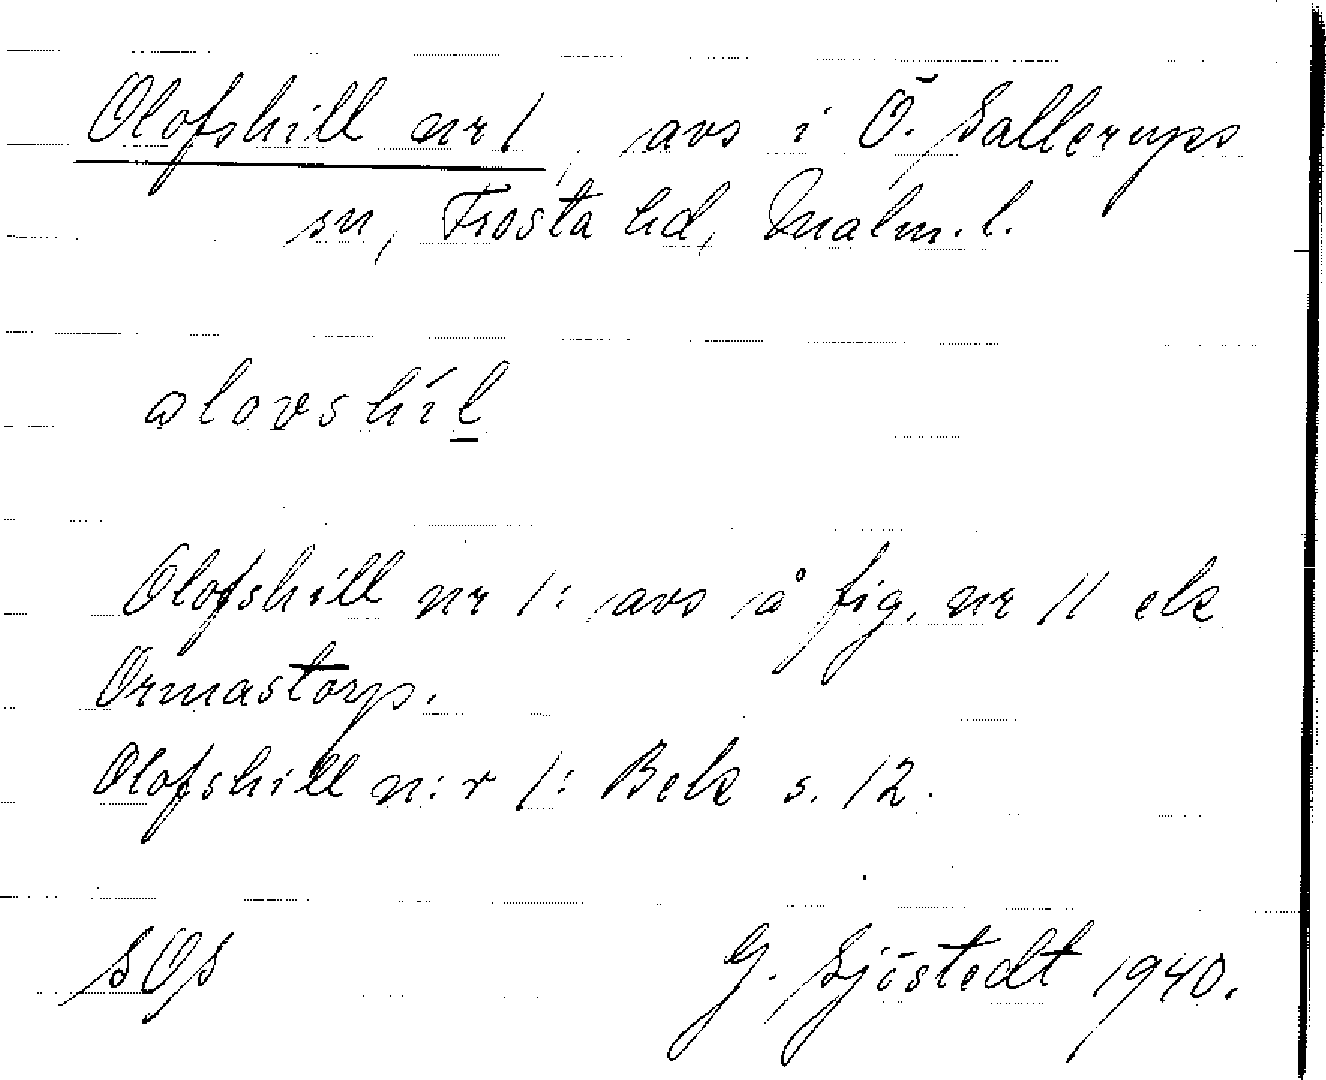 Olofshill nr 1, avs i Ö. Sallerups
sn, Frosta hd, Malm. l.
alovshíl
Olofshill nr 1: avs å fig. nr 11 ek
Ormastorp.
Olofshill n:r 1: Bek s. 12.
SOS
G. Sjöstedt 1940.